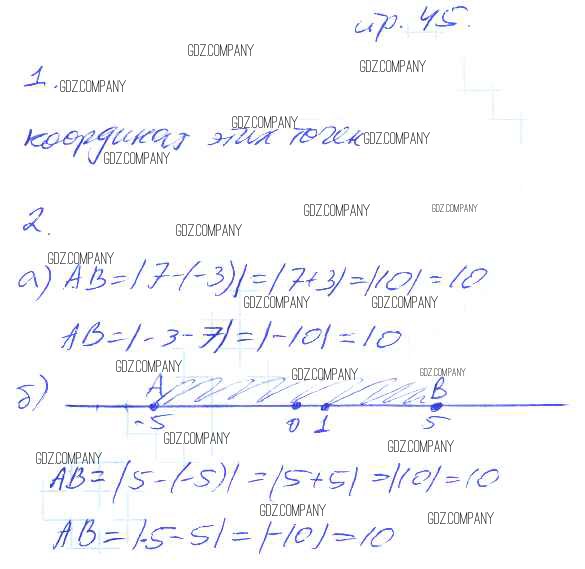 пр. 45.
GDZ.COMPANY
GDZ.COMPANY
1.
GDZ.COMPANY
GDZ.COMPANY
координат этих точек
GDZ.COMPANY
GDZ.COMPANY
GDZ.COMPANY
GDZ.COMPANY
2.
GDZ.COMPANY
GDZ.COMPANY
а) AB=|7-(-3)|=|7+3|=|10|=10
GDZ.COMPANY
GDZ.COMPANY
AB=|-3-7|=|-10|=10
GDZ.COMPANY
GDZ.COMPANY
GDZ.COMPANY
б) A B
-5 0 1 5
GDZ.COMPANY
GDZ.COMPANY
GDZ.COMPANY
AB=|5-(-5)|=|5+5|=|10|=10
GDZ.COMPANY
GDZ.COMPANY
AB=|-5-5|=|-10|=10